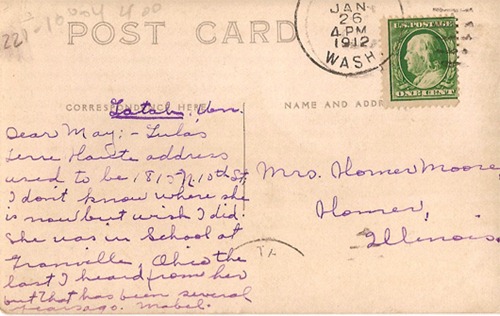 POST CARD
JAN
26
4 PM
1912
WASH.
U.S. POSTAGE
ONE CENT
CORRESPONDENCE
NAME AND ADDR
Latah, Wn.
Dear May; - Lula's
Terre Haute address
used to be 1815 N 10th St,
I don't know where she
is now but wish I did.
She was in School at
Granville, Ohio the
last I heard from her
but that has been several
years ago. Mabel.
Mrs. Homer Moore,
Homer,
Illinois.